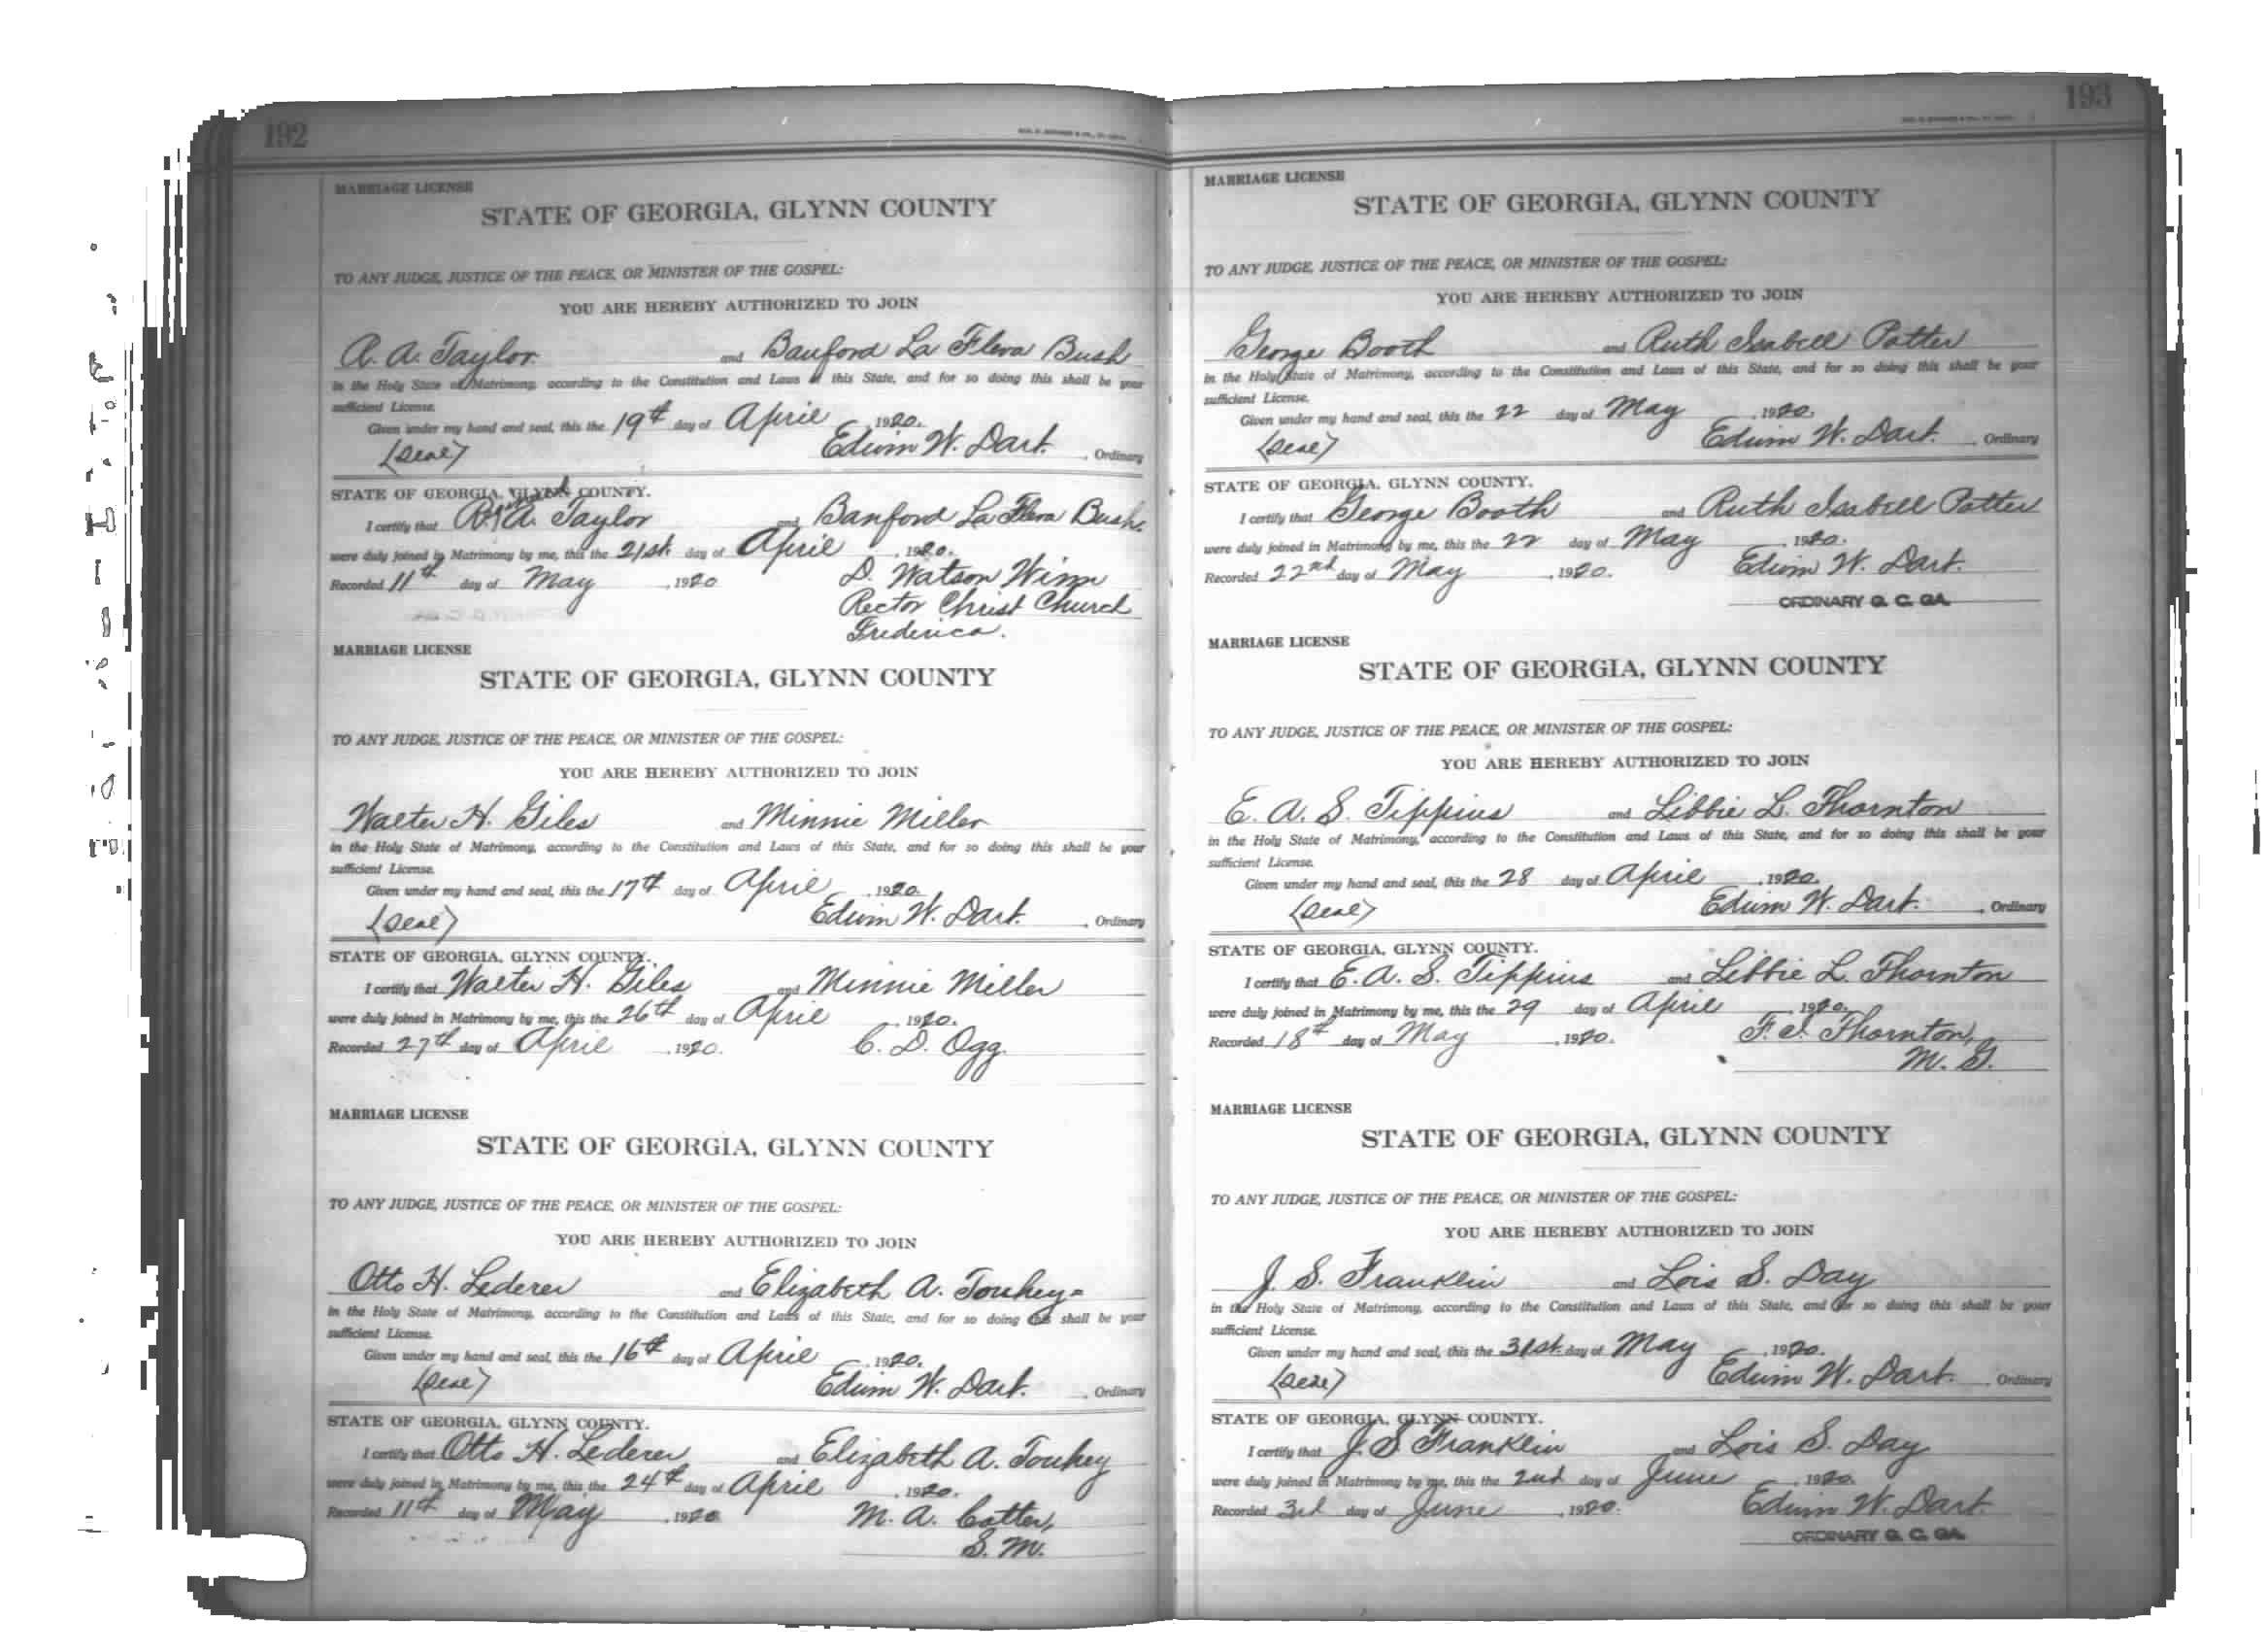 192
MARRIAGE LICENSE
STATE OF GEORGIA, GLYNN COUNTY
TO ANY JUDGE, JUSTICE OF THE PEACE, OR MINISTER OF THE GOSPEL:
YOU ARE HEREBY AUTHORIZED TO JOIN
A. A. Taylor and Banford La Flera Bush
in the Holy State of Matrimony, according to the Constitution and Laws of this State, and for so doing this shall be your
sufficient License.
Given under my hand and seal, this the 19th day of April, 1920.
(Seal) Edwin W. Dart. Ordinary
STATE OF GEORGIA, GLYNN COUNTY.
I certify that A. Taylor and Banford La Flera Bush.
were duly joined in Matrimony by me, this the 21st. day of April, 1920.
Recorded 11th day of May, 1920 D. Watson Winn
Rector Christ Church
Frederica.
MARRIAGE LICENSE
STATE OF GEORGIA, GLYNN COUNTY
TO ANY JUDGE, JUSTICE OF THE PEACE, OR MINISTER OF THE GOSPEL:
YOU ARE HEREBY AUTHORIZED TO JOIN
Walter H. Giles and Minnie Miller
in the Holy State of Matrimony, according to the Constitution and Laws of this State, and for so doing this shall be your
sufficient License.
Given under my hand and seal, this the 17th day of April, 1920.
(Seal) Edwin W. Dart. Ordinary
STATE OF GEORGIA, GLYNN COUNTY.
I certify that Walter H. Giles and Minnie Miller
were duly joined in Matrimony by me, this the 26th day of April, 1920.
Recorded 27th day of April, 1920. C. D. Ogg.
MARRIAGE LICENSE
STATE OF GEORGIA, GLYNN COUNTY
TO ANY JUDGE, JUSTICE OF THE PEACE, OR MINISTER OF THE GOSPEL:
YOU ARE HEREBY AUTHORIZED TO JOIN
Otto H. Lederer and Elizabeth A. Touhey-
in the Holy State of Matrimony, according to the Constitution and Laws of this State, and for so doing this shall be your
sufficient License.
Given under my hand and seal, this the 16th day of April, 1920.
(Seal) Edwin W. Dart. Ordinary
STATE OF GEORGIA, GLYNN COUNTY.
I certify that Otto H. Lederer and Elizabeth A. Touhey
were duly joined in Matrimony by me, this the 24th day of April, 1920.
Recorded 11th day of May, 1920 M. A. Cotter,
S. M.
193
MARRIAGE LICENSE
STATE OF GEORGIA, GLYNN COUNTY
TO ANY JUDGE, JUSTICE OF THE PEACE, OR MINISTER OF THE GOSPEL:
YOU ARE HEREBY AUTHORIZED TO JOIN
George Booth and Ruth Isabell Potter
in the Holy State of Matrimony, according to the Constitution and Laws of this State, and for so doing this shall be your
sufficient License.
Given under my hand and seal, this the 22 day of May, 1920.
(Seal) Edwin W. Dart. Ordinary
STATE OF GEORGIA, GLYNN COUNTY.
I certify that George Booth and Ruth Isabell Potter
were duly joined in Matrimony by me, this the 22 day of May, 1920.
Recorded 22nd day of May, 1920. Edwin W. Dart.
ORDINARY G. C. GA.
MARRIAGE LICENSE
STATE OF GEORGIA, GLYNN COUNTY
TO ANY JUDGE, JUSTICE OF THE PEACE, OR MINISTER OF THE GOSPEL:
YOU ARE HEREBY AUTHORIZED TO JOIN
E. A. S. Tippins and Libbie L. Thornton
in the Holy State of Matrimony, according to the Constitution and Laws of this State, and for so doing this shall be your
sufficient License.
Given under my hand and seal, this the 28 day of April, 1920.
(Seal) Edwin W. Dart. Ordinary
STATE OF GEORGIA, GLYNN COUNTY.
I certify that E. A. S. Tippins and Libbie L. Thornton
were duly joined in Matrimony by me, this the 29 day of April, 1920.
Recorded 18th day of May, 1920. F. J. Thornton,
M. G.
MARRIAGE LICENSE
STATE OF GEORGIA, GLYNN COUNTY
TO ANY JUDGE, JUSTICE OF THE PEACE, OR MINISTER OF THE GOSPEL:
YOU ARE HEREBY AUTHORIZED TO JOIN
J. S. Franklin and Lois S. Day
in the Holy State of Matrimony, according to the Constitution and Laws of this State, and for so doing this shall be your
sufficient License.
Given under my hand and seal, this the 31st. day of May, 1920.
(Seal) Edwin W. Dart. Ordinary
STATE OF GEORGIA, GLYNN COUNTY.
I certify that J. S Franklin and Lois S. Day
were duly joined in Matrimony by me, this the 2nd day of June, 1920.
Recorded 3rd day of June, 1920. Edwin W. Dart.
ORDINARY G. C. GA.